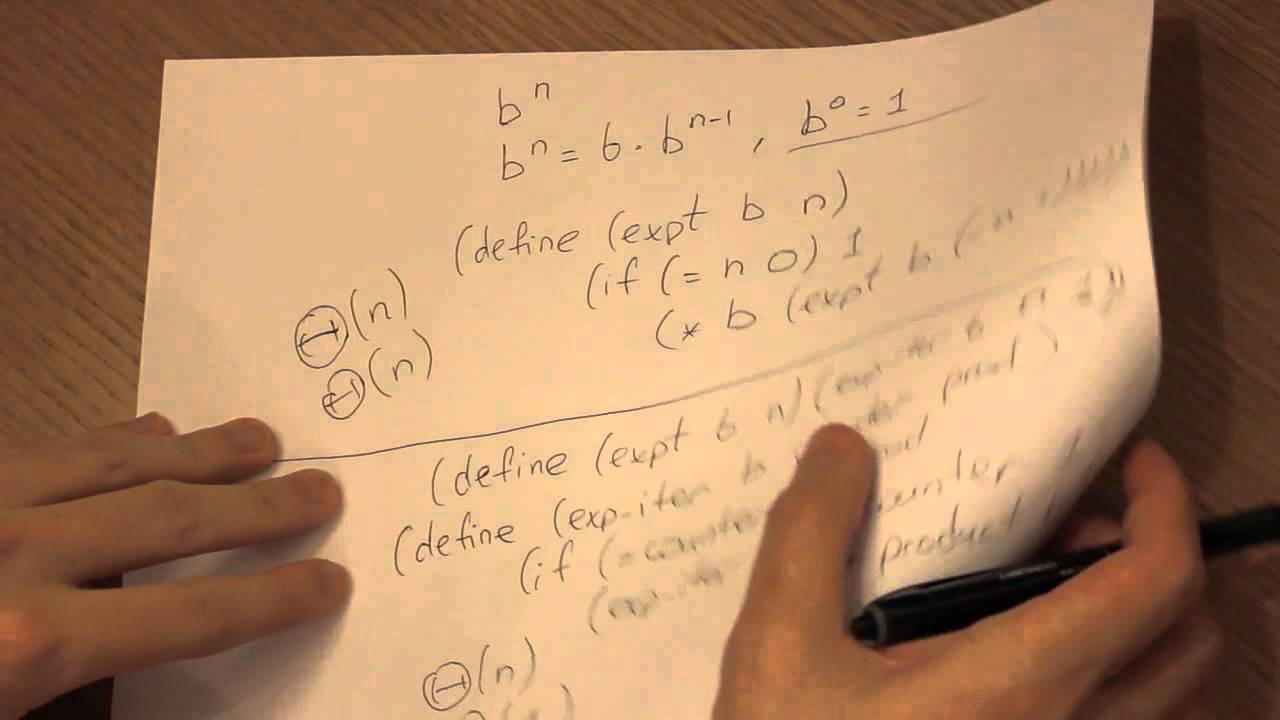 bⁿ
bⁿ = b · bⁿ⁻¹ , b⁰ = 1
(define (expt b n)
(if (= n 0) 1
(* b (expt b (- n 1)))))
Θ(n)
Θ(n)
(define (expt b n) (exp-iter b n 1))
(define (exp-iter b prod)
(if (= counter prod
(exp-iter counter
product
Θ(n)